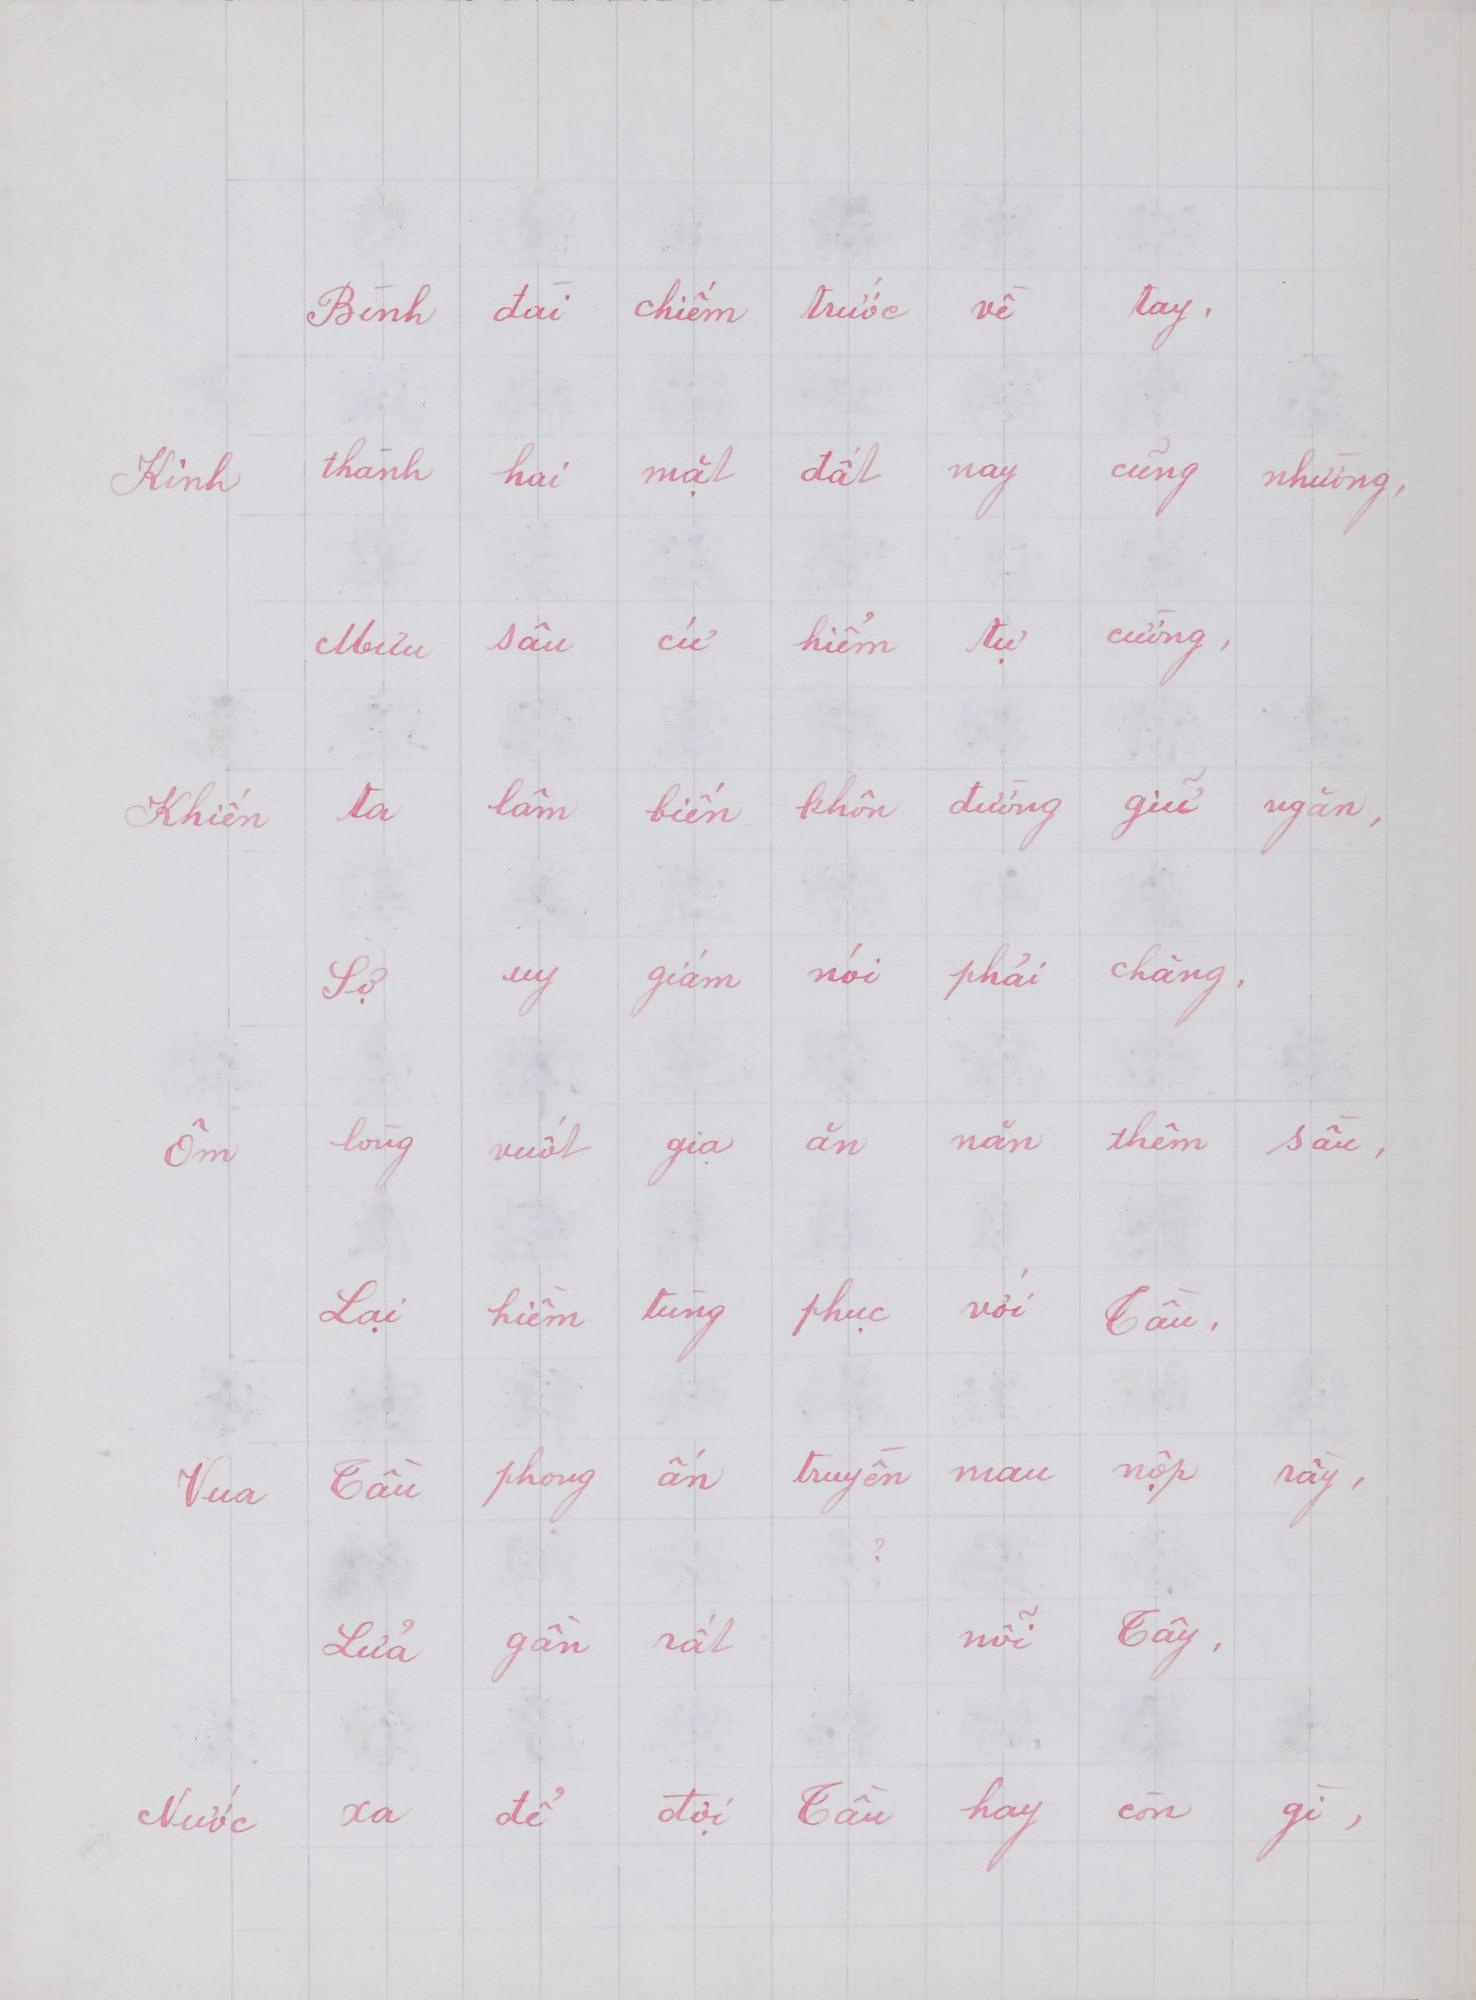 Bình đài chiếm trước về tay,
Kinh thành hai mặt đất nay cũng nhường,
Mưu sâu cứ hiểm tự cường,
Khiến ta lâm biến khôn đường giữ ngăn,
Sợ uy giám nói phải chăng,
Ôm lòng vuốt giạ ăn năn thêm sầu,
Lại hiềm tùng phục với Tầu,
Vua Tầu phong ấn truyền mau nộp rầy,
?
Lửa gần rất nỗi Tây,
Nước xa để đợi Tầu hay còn gì,